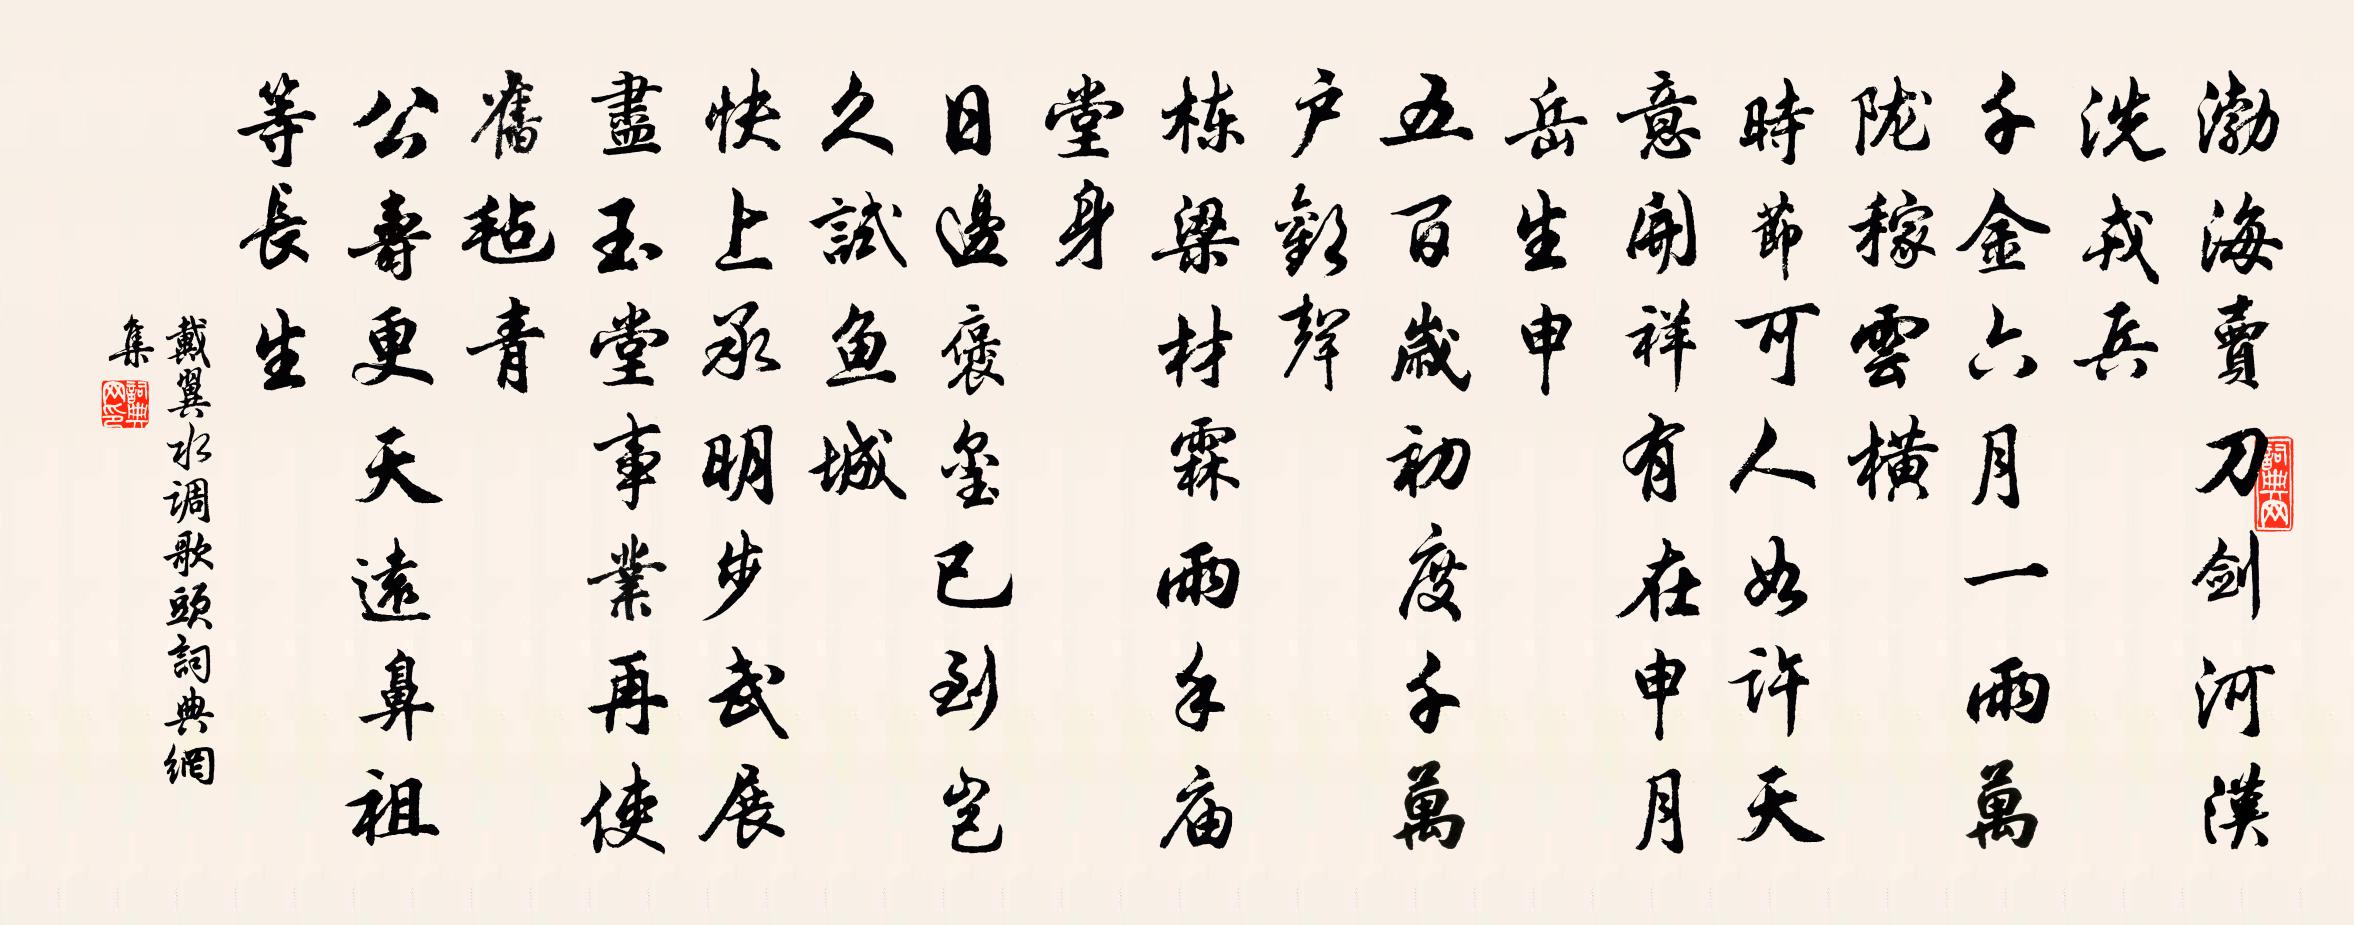 渤海賣刀劍河漢
洗戎兵
千金六月一雨萬
陇稼雲橫
時節可人如許天
意開祥有在申月
岳生申
五百歲初度千萬
户歡聲
栋梁材霖雨手庙
堂身
日邊褒璽已到岂
久試魚城
快上承明步武展
盡玉堂事業再使
舊毡青
公壽更天遠鼻祖
等長生
戴翼水调歌頭詞典網
集
詞典网
詞典网印